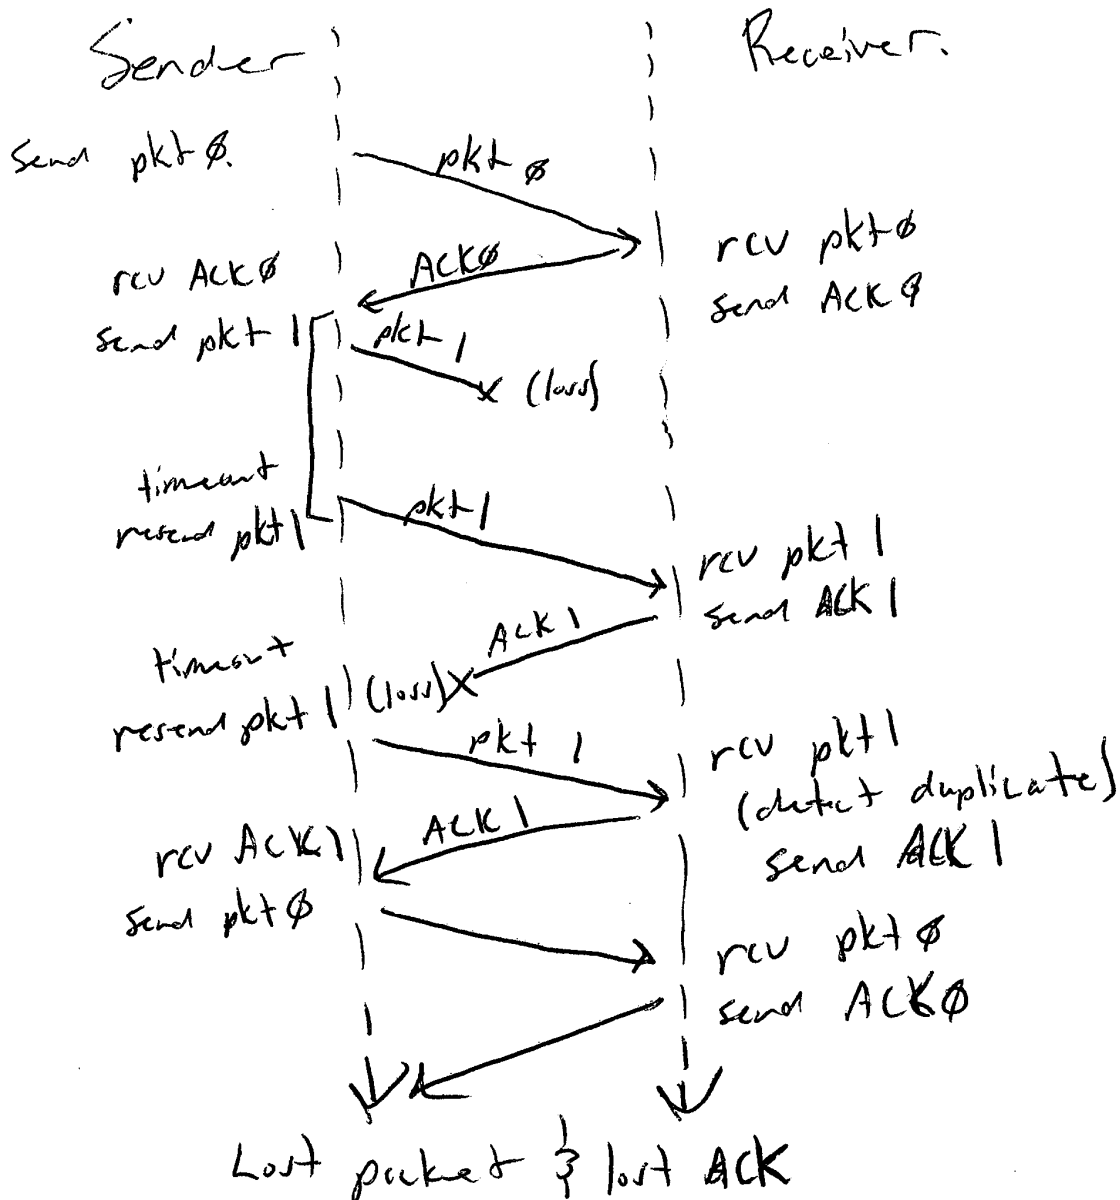 Sender
Receiver.
send pktø.
pkt ø
rcv pktø
send ACKø
ACKø
rcv ACKø
send pkt 1
pkt 1
(loss)
timeout
resend pkt 1
pkt 1
rcv pkt 1
send ACK 1
ACK 1
(loss)
timeout
resend pkt 1
pkt 1
rcv pkt 1
(detect duplicate)
send ACK 1
ACK 1
rcv ACK 1
send pktø
rcv pktø
send ACKø
Lost packet & lost ACK